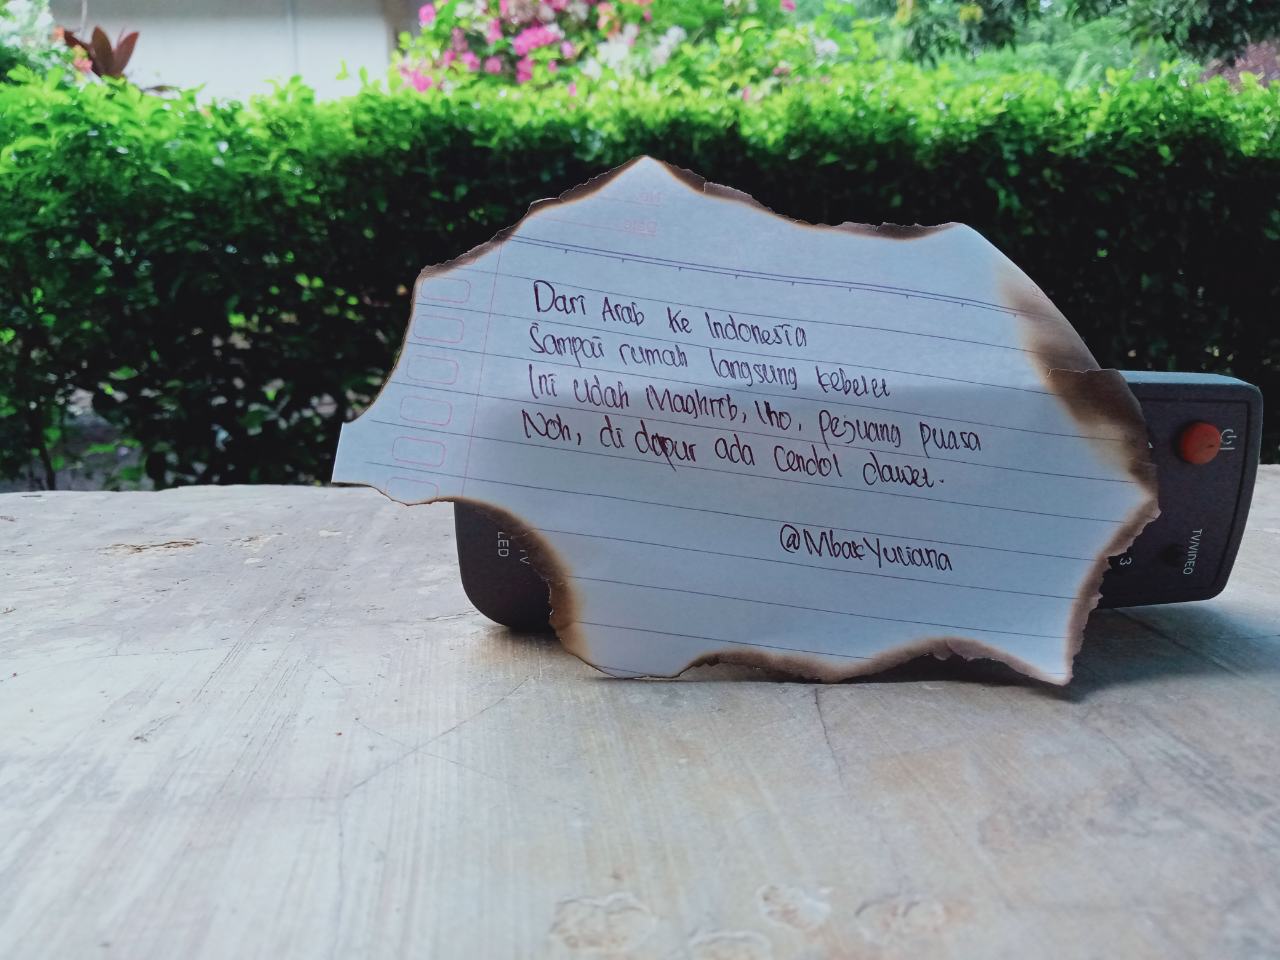 Dari Arab Ke Indonesia
Sampai rumah langsung kebelet
Ini udah Maghrib, lho, pejuang puasa
Noh, di dapur ada cendol dawet.
@MbakYuliana
LED
TV
3
TV/VIDEO